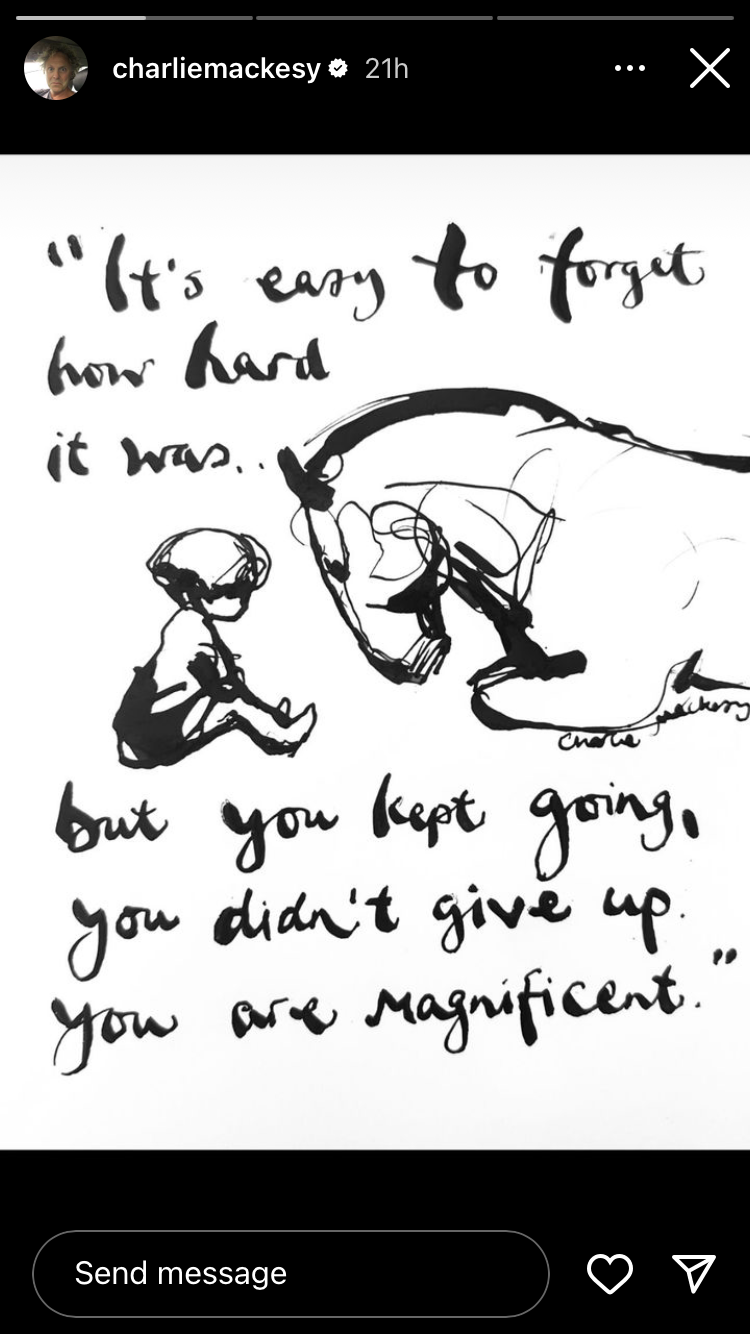 charliemackesy 21h
"It's easy to forget
how hard
it was..
Charlie Mackesy
but you kept going,
you didn't give up.
you are magnificent."
Send message